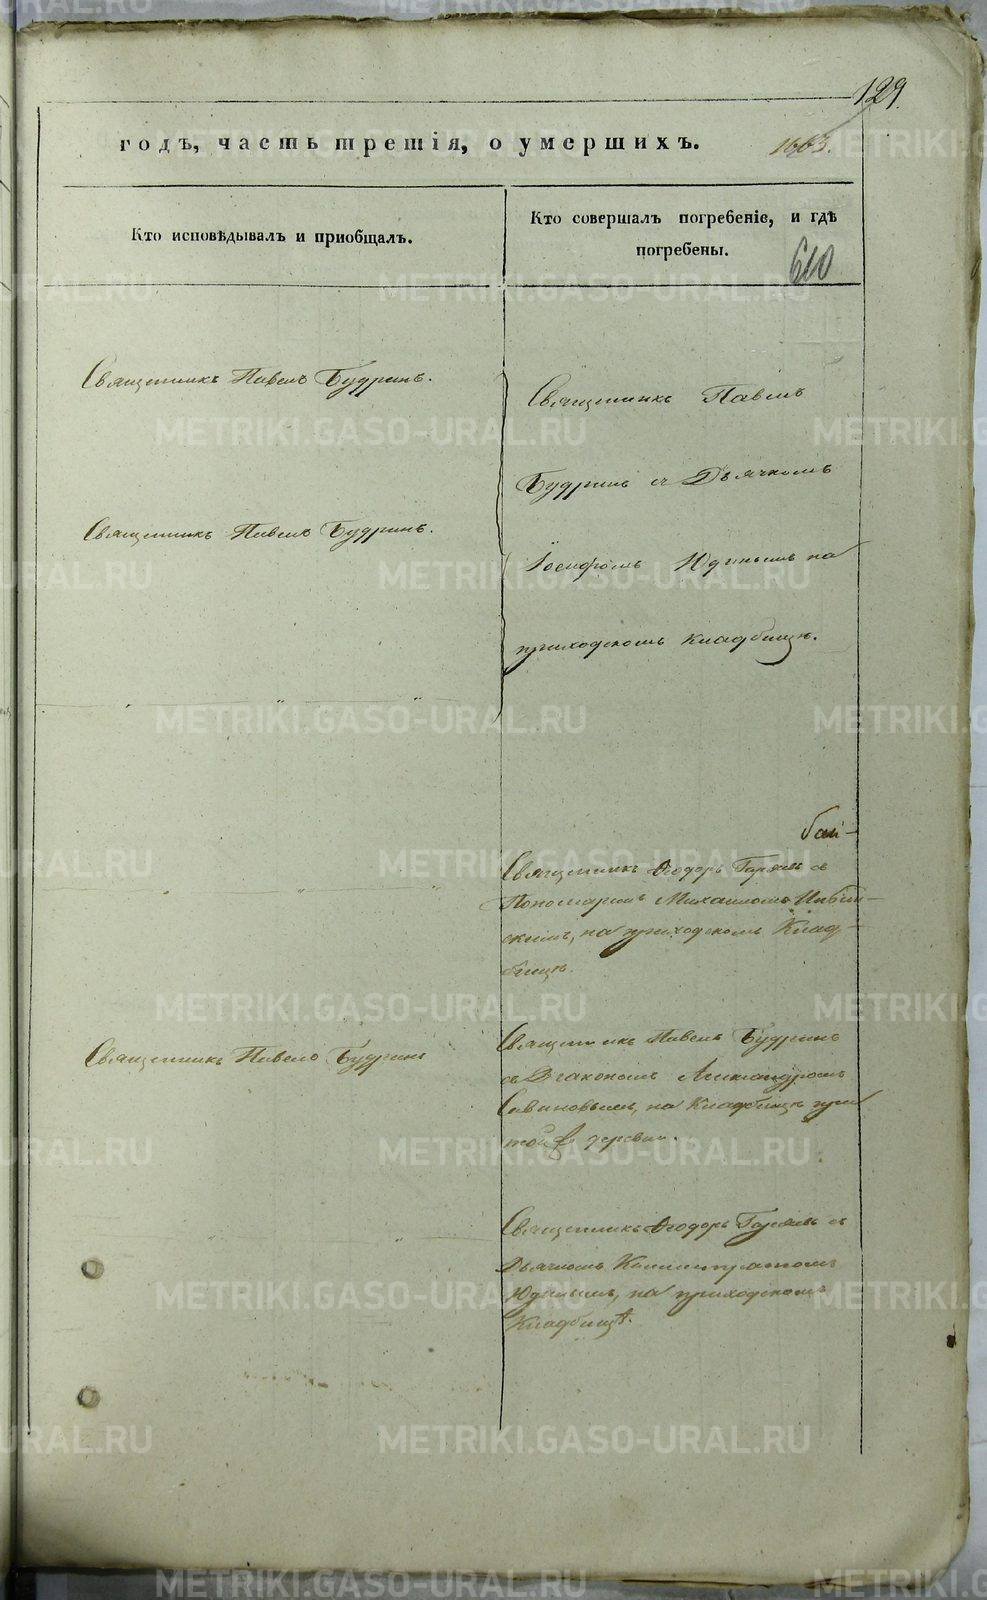 129.
годъ, часть третія, о умершихъ.
1663.
Кто исповѣдывалъ и приобщалъ.
Кто совершалъ погребеніе, и гдѣ
погребены.
610
Священникъ Павелъ Будринъ.
Священникъ Павелъ
Будринъ съ Дьячкомъ
Священникъ Павелъ Будринъ.
Іосифомъ Юдинымъ на
приходскомъ кладбищѣ.
Священникъ Ѳеодоръ с
Пономаремъ Михаиломъ
скимъ, на приходскомъ Клад-
бищѣ.
Священникъ Павелъ Будринъ
Священникъ Павелъ Будринъ
съ Діакономъ Александромъ
Савиновымъ, на Кладбищѣ при
той деревни.
Священникъ Ѳеодоръ с
Дьячкомъ
Юдинымъ, на приходскомъ
Кладбищѣ.
METRIKI.GASO-URAL.RU